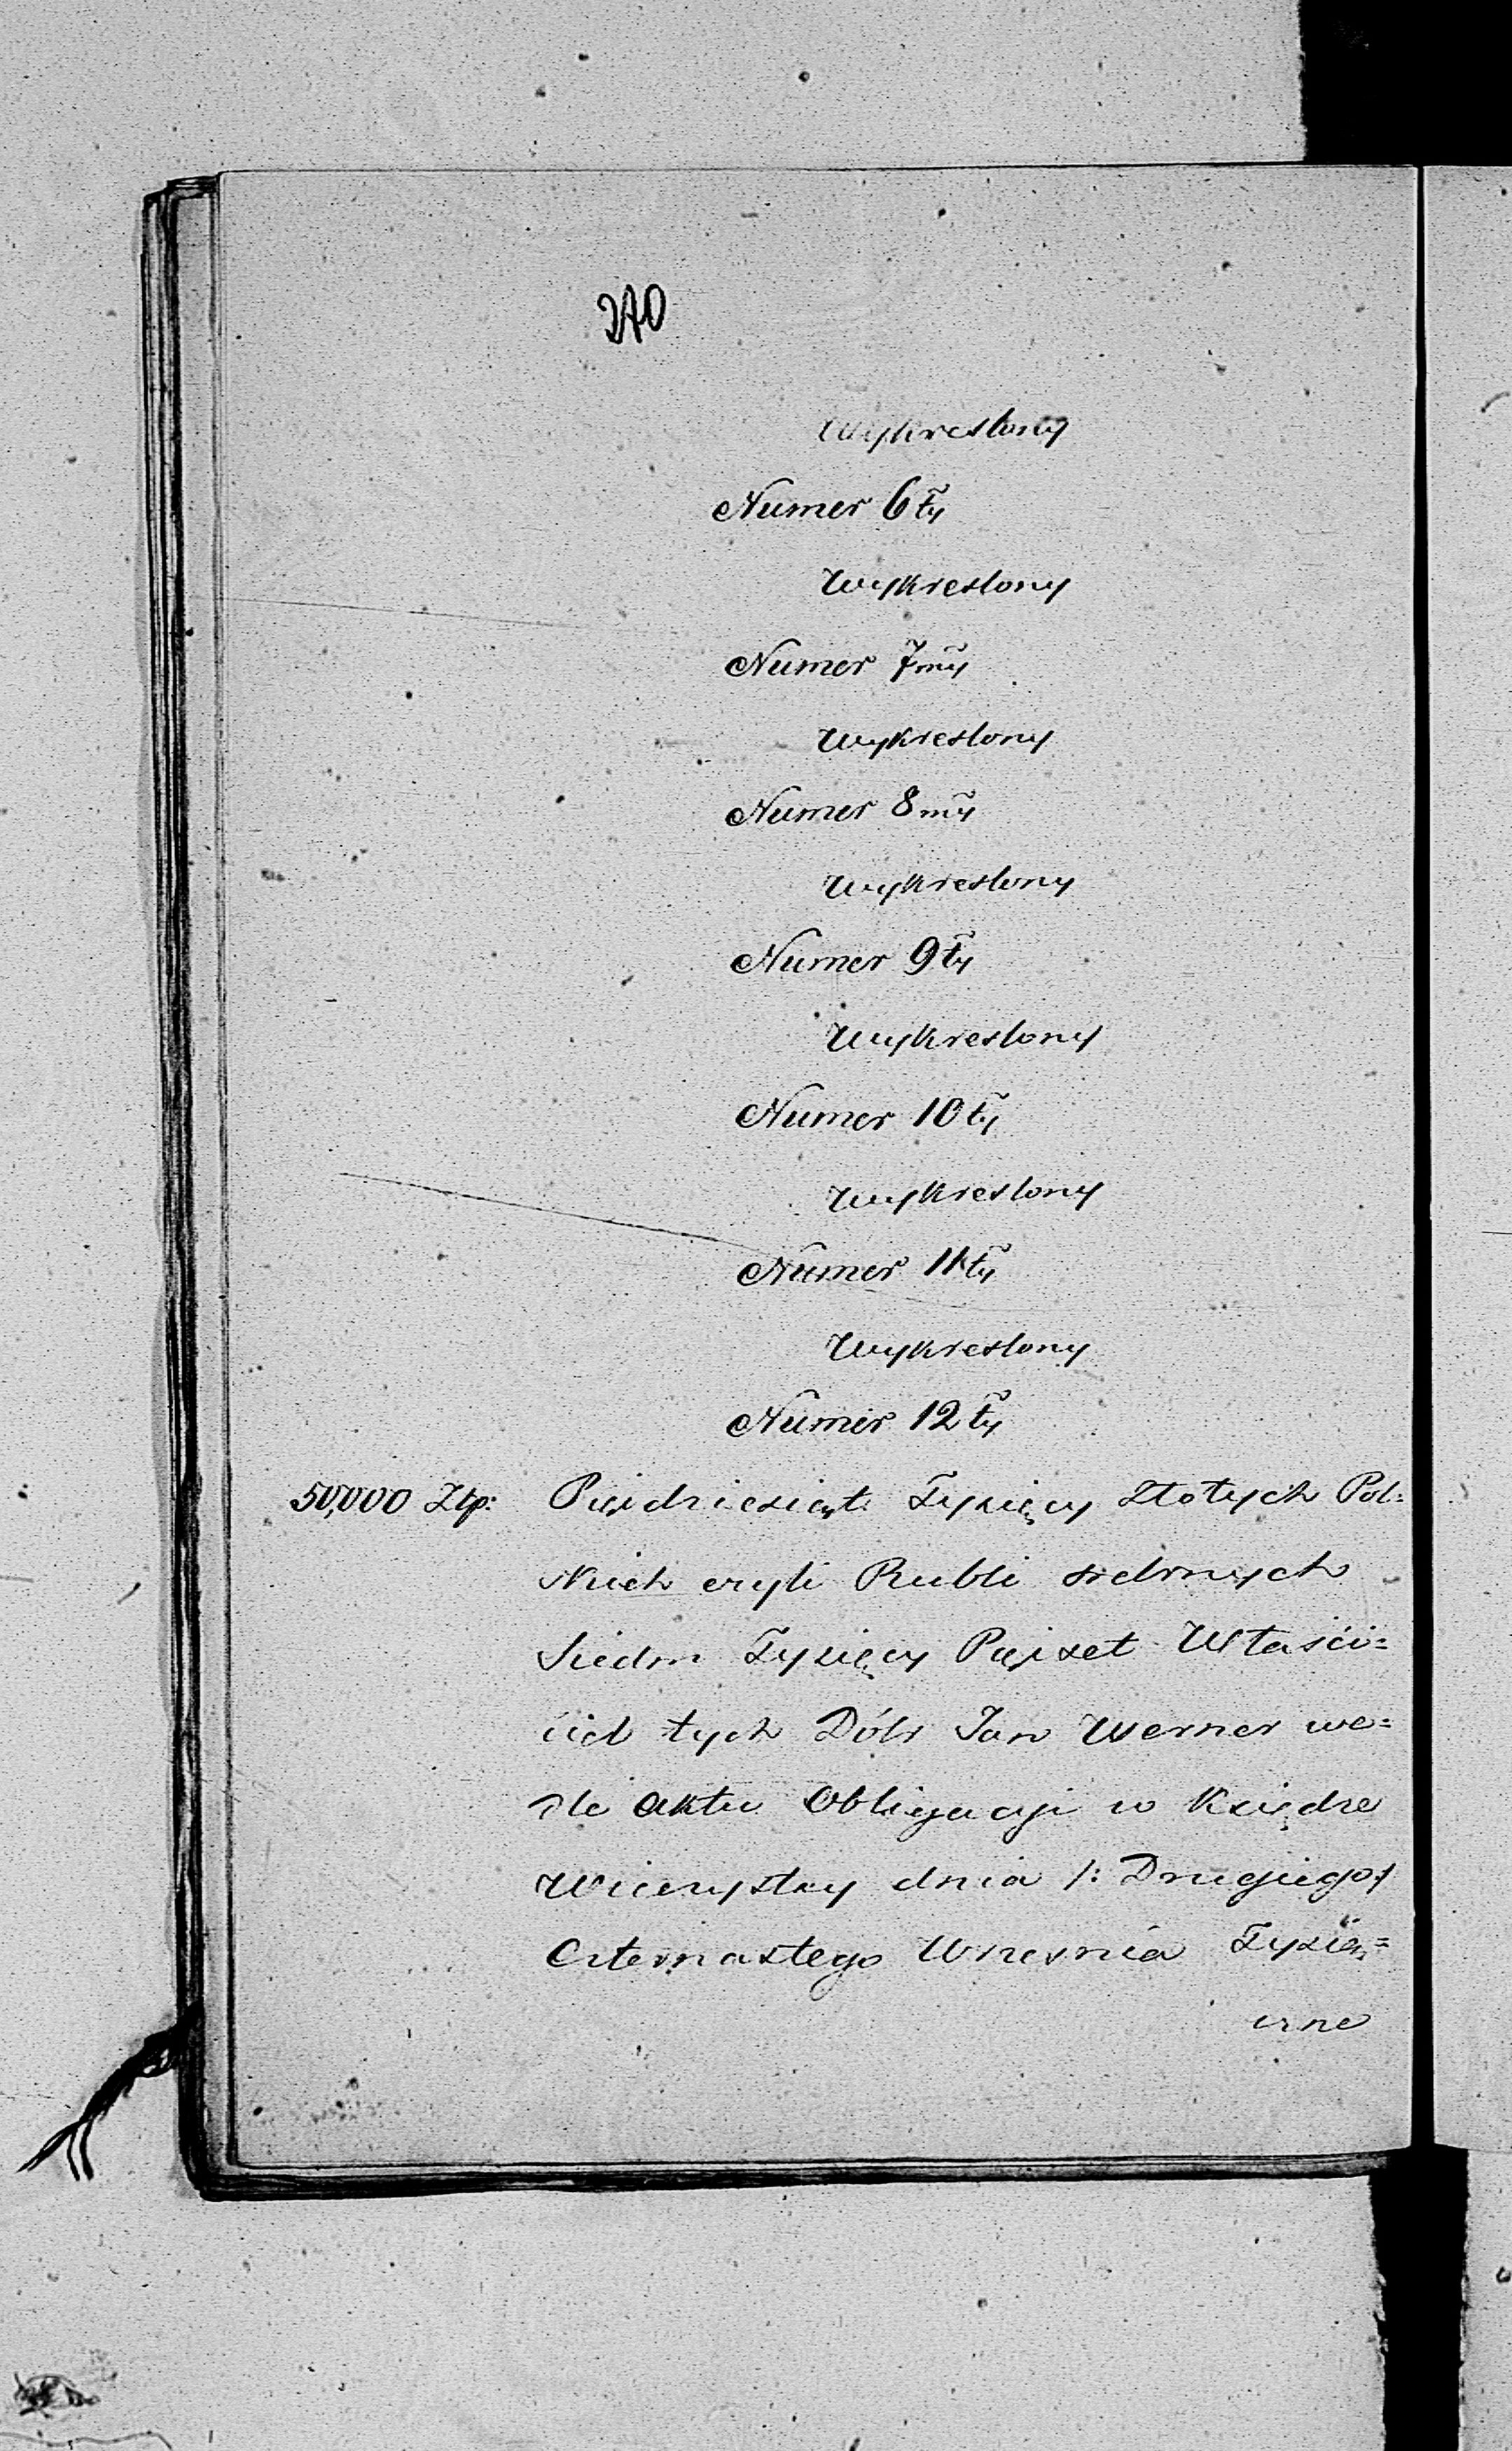 270
Wykreslony
Numer 6ty
Wykreslony
Numer 7my
Wykreslony
Numer 8my
Wykreslony
Numer 9ty
Wykreslony
Numer 10ty
Wykreslony
Numer 11ty
Wykreslony
Numer 12ty
50,000 Złp: Pięćdziesiąt Tysięcy Złotych Pol:
skich czyli Rubli srebrnych
Siedm Tysięcy Pięćset Właści=
ciel tych Dóbr Jan Werner we=
dle Aktu Obligacyi w Księdze
Wieczystey dnia /: Drugiego /
Czternastego Września Tysiąc=
czne